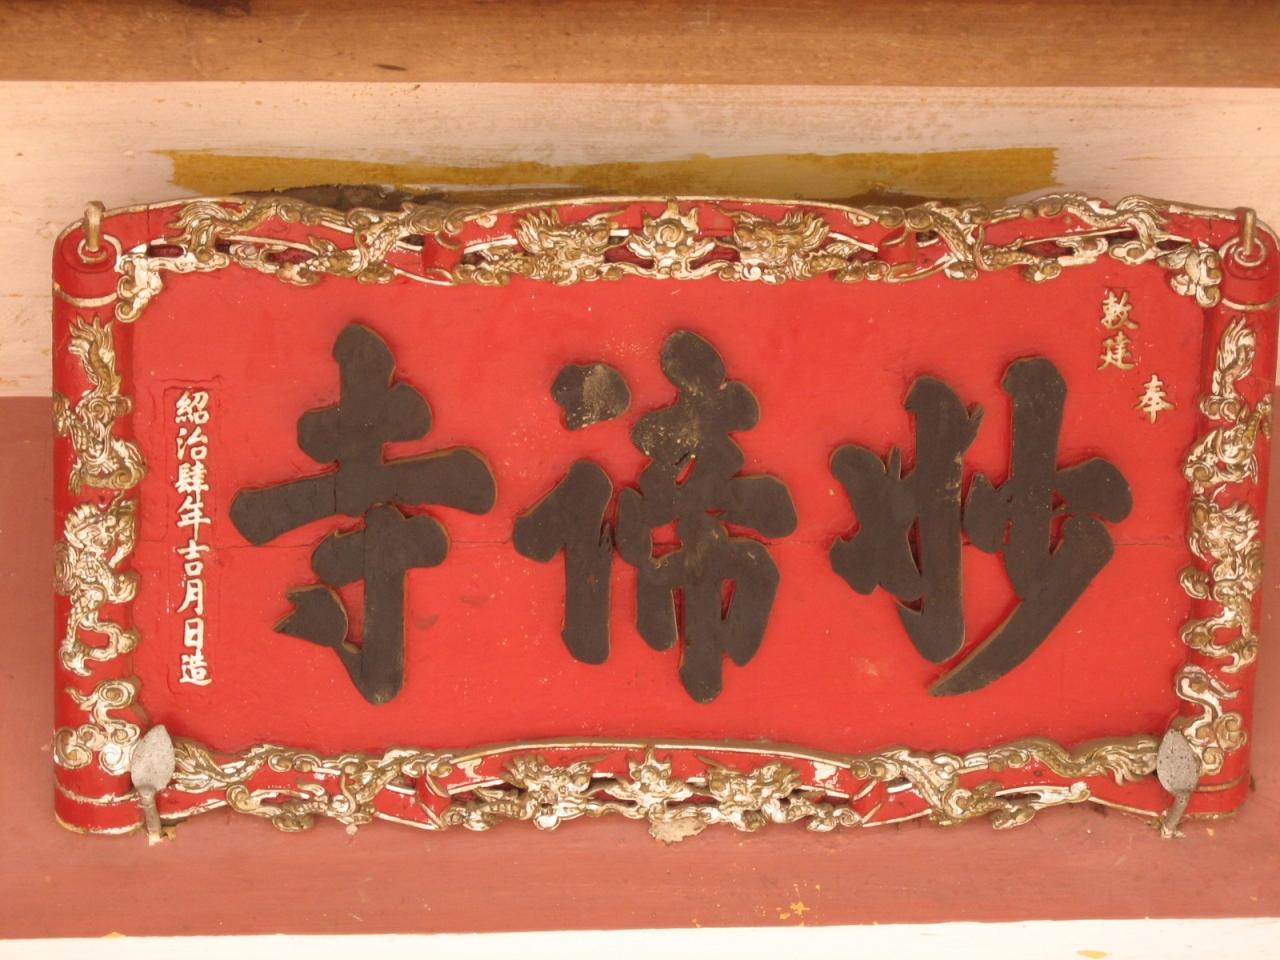 奉
敕建
妙諦寺
紹治肆年吉月日造